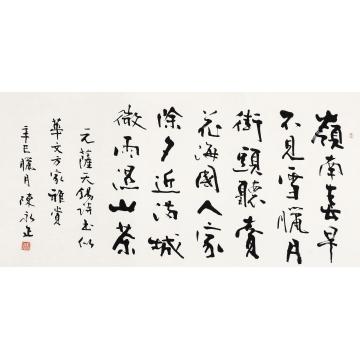 嶺南春早
不見雪臘月
街頭聽賣
花海國人家
除夕近滿城
微雨濕山茶
元薩天錫詩書似
華文方家雅賞
辛巳臘月陳永正